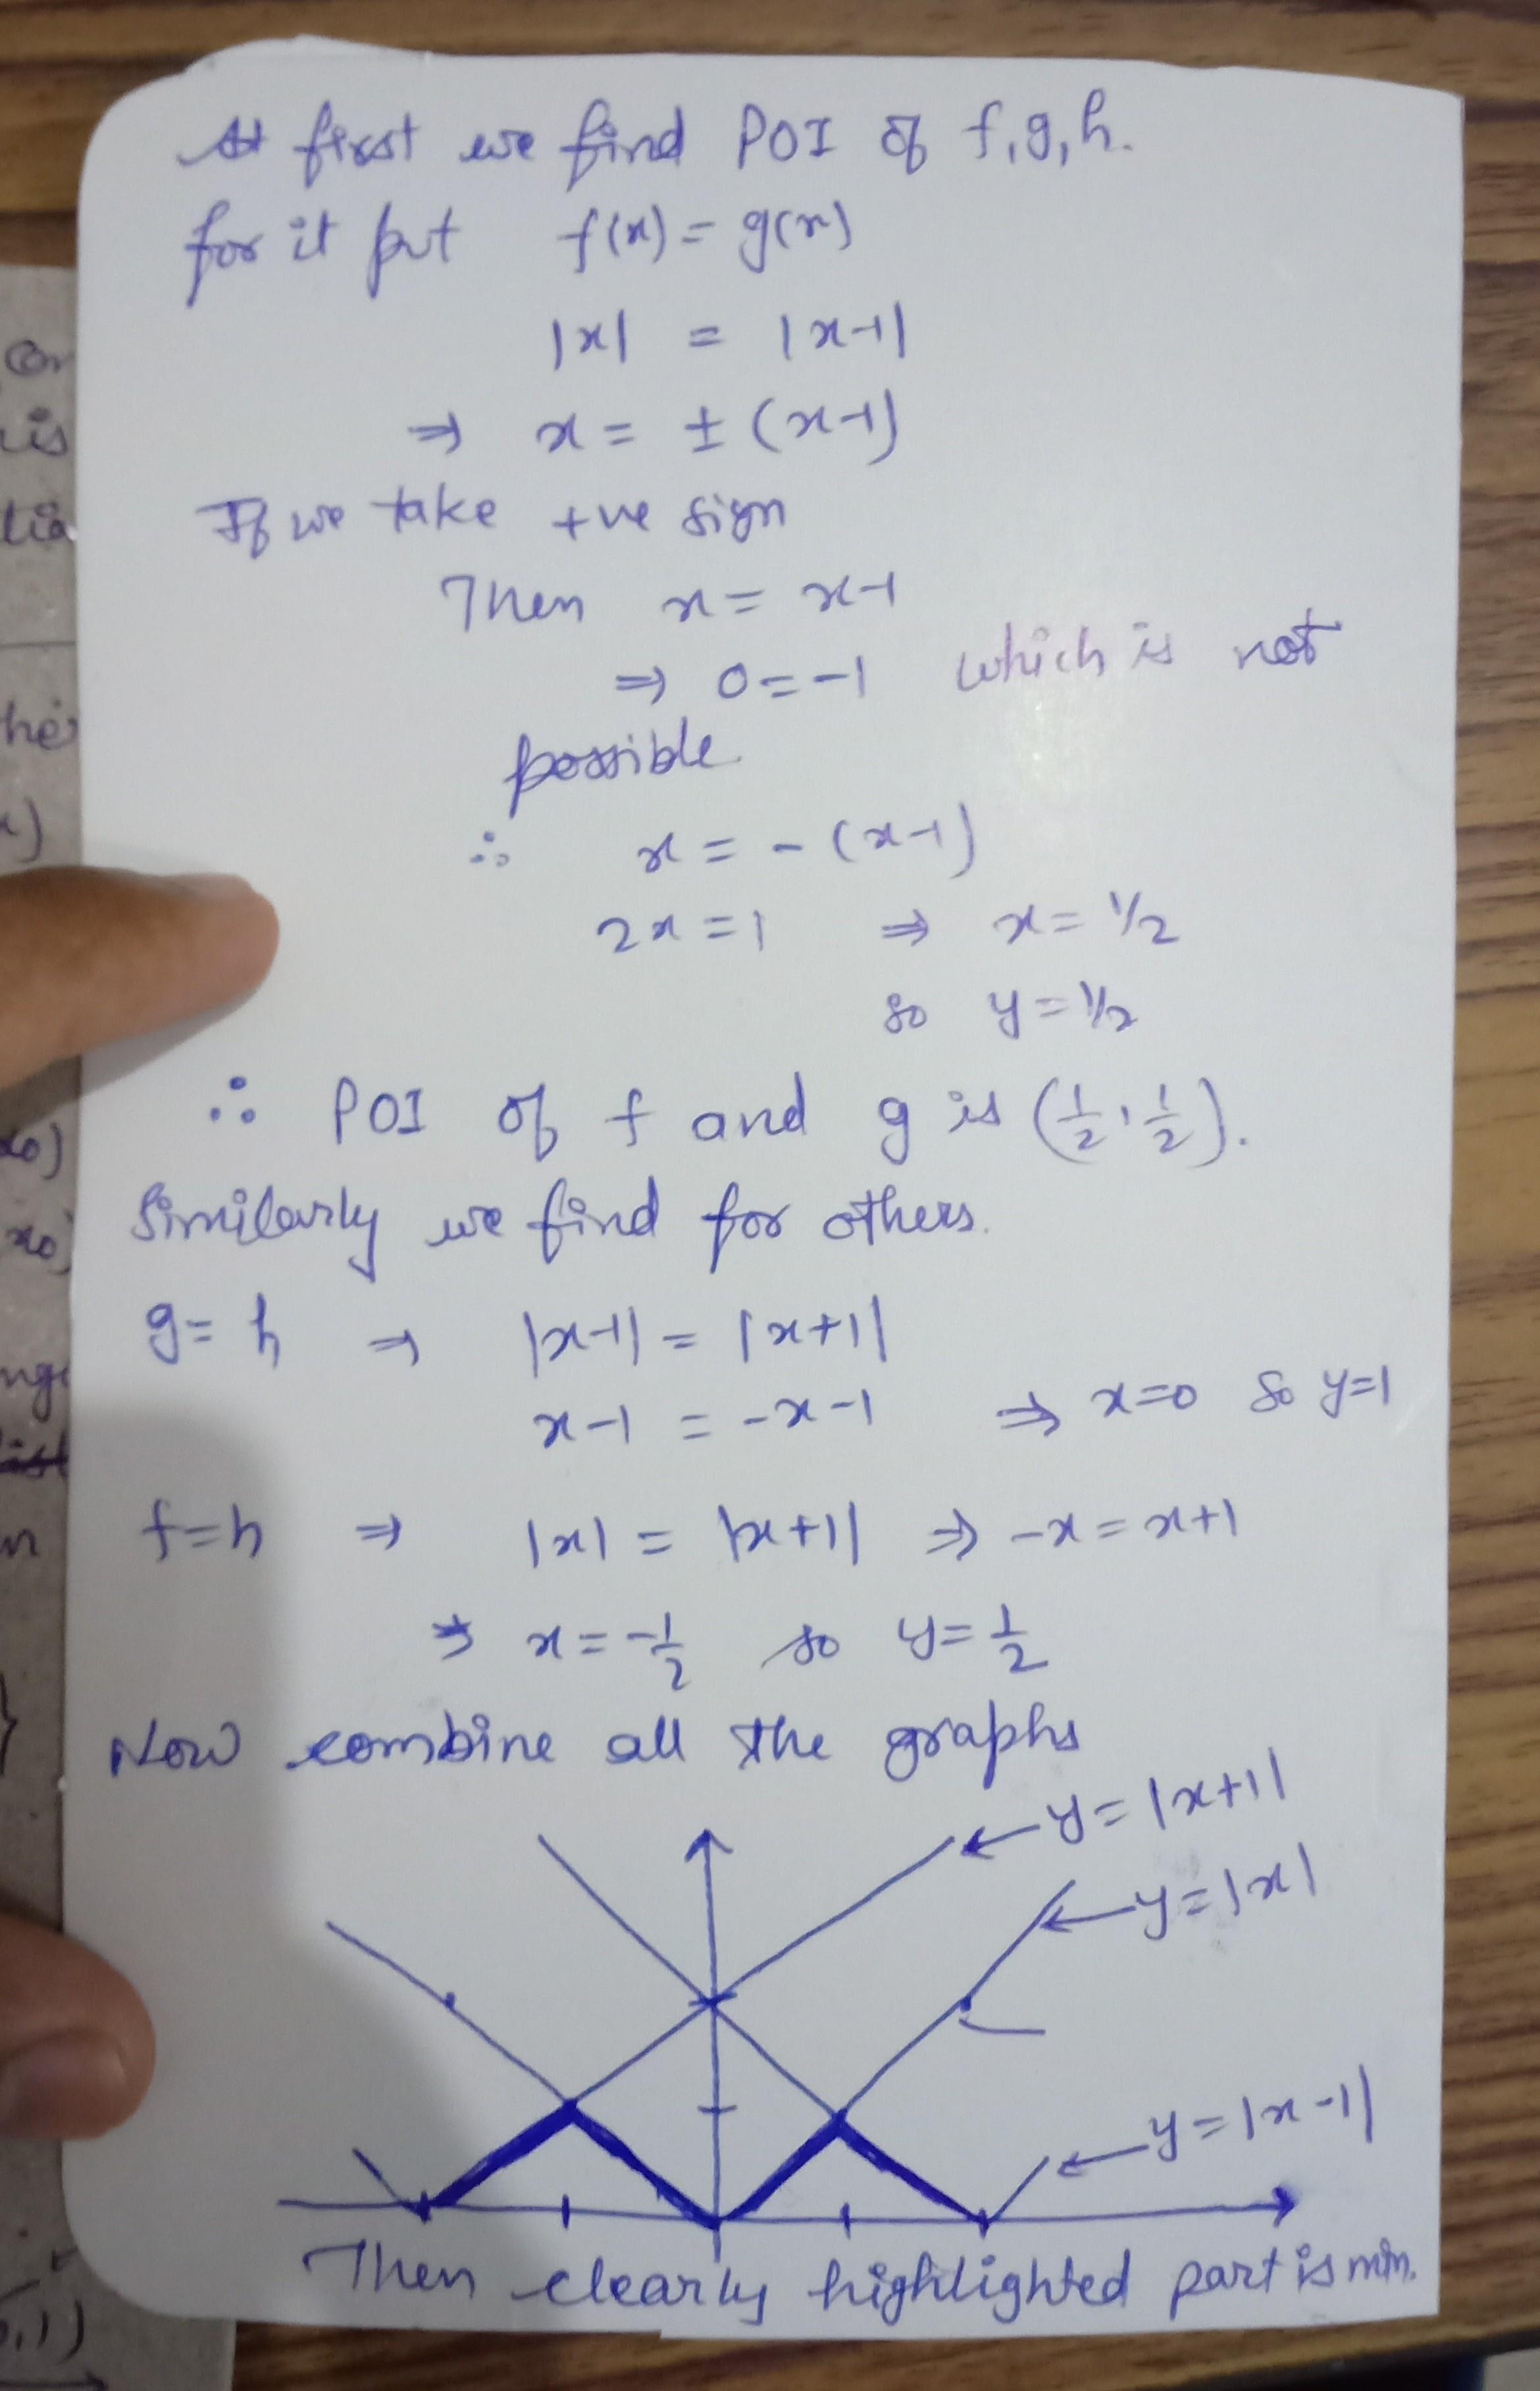 At first we find POI of f, g, h.
for it put f(x) = g(x)
|x| = |x-1|
⇒ x = ± (x-1)
If we take +ve sign
Then x = x-1
⇒ 0 = -1 which is not
possible
∴ x = - (x-1)
2x = 1 ⇒ x = 1/2
so y = 1/2
∴ POI of f and g is (1/2, 1/2).
Similarly we find for others.
g = h ⇒ |x-1| = |x+1|
x-1 = -x-1 ⇒ x=0 so y=1
f=h ⇒ |x| = |x+1| ⇒ -x = x+1
⇒ x = -1/2 so y = 1/2
Now combine all the graphs
y = |x+1|
y = |x|
y = |x-1|
Then clearly highlighted part is min.
is
x)
ng
n